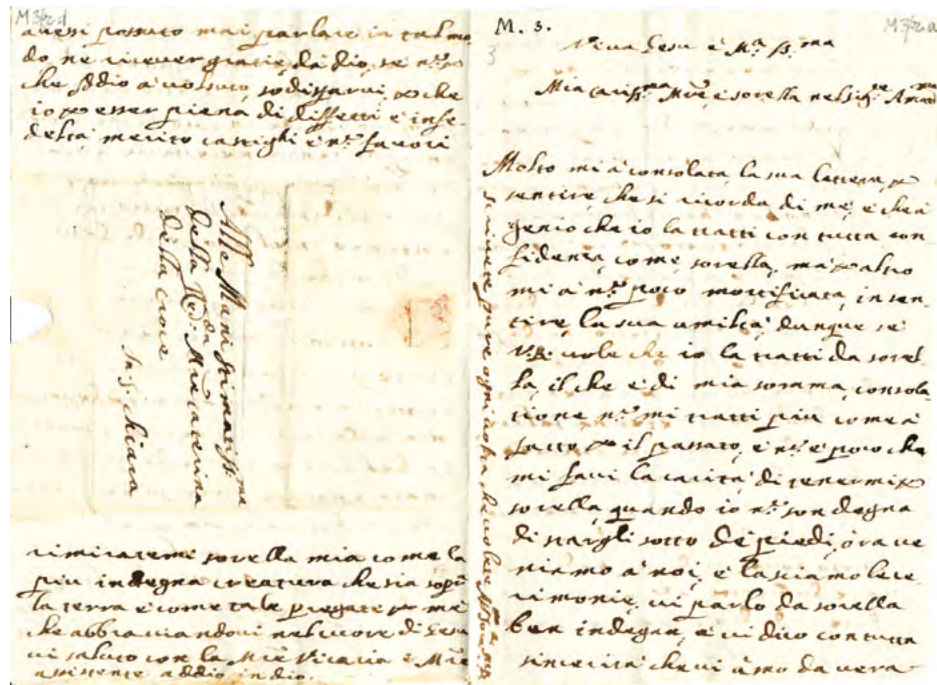 M3/2d
avessi possuto mai parlare in tal mo
do, ne ricever gratie da dio, se n.º
che Iddio à voluto, sodisfarvi, perche
io per esser piena di diffetti e infe
deltà merito castighi e n.º favori
Alle Mani Stimatiss.me
della Rda Mre Caterina
della Croce
In S. Chiara
rimiratemi sorella mia come la
piu indegna creatura che sia sopra
la terra e come tale pregate per me
che abbraciandovi nel cuore di Gesu
vi saluto con la Mre Vicaria e Mre
assistente addio in dio.
M. 3.
3
M3/2a
Viva Gesu e M.a SS.ma
Mia cariss.ma Mre e sorella nel Sig.re
Molto mi à consolata, la sua lettera, per
sentire che si ricorda di me, e che à
genio che io la tratti con tutta con
fidenza, come sorella, ma per altro
mi à n.º poco mortificata, in sen
tire, la sua umiltà, dunque se
V.R. vole che io la tratti da sorel
la, il che e di mia somma, consola
tione n.º mi tratti piu come à
fatto per il passato, e n.º e poco che
mi facci la carità di tenermi per
sorella, quando io n.º son degna
di stargli sotto de piedi, ora ve
niamo à noi, e lasciamo le ce
rimonie, vi parlo da sorella
ben indegna, e vi dico con tutta
sincerità che vi amo da vera
scrivete pure ogni volta che volete